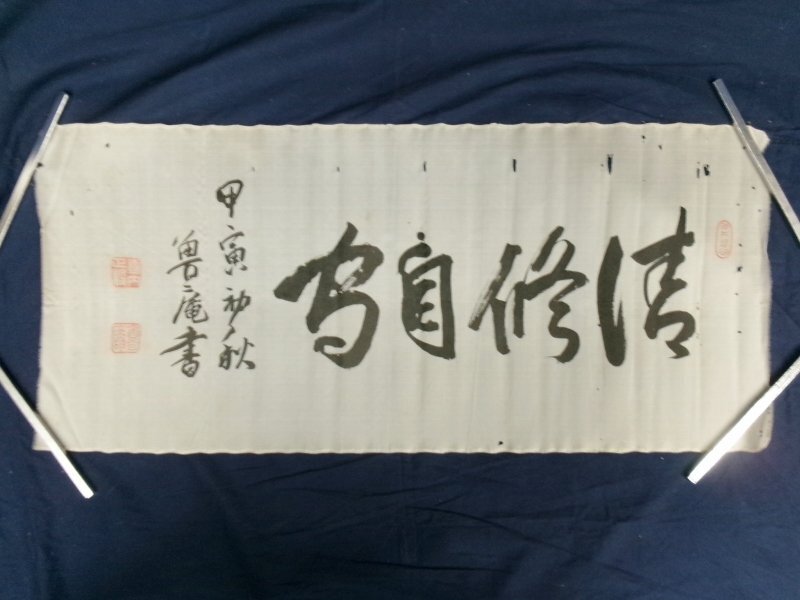 清修自守
甲寅初秋
魯庵書